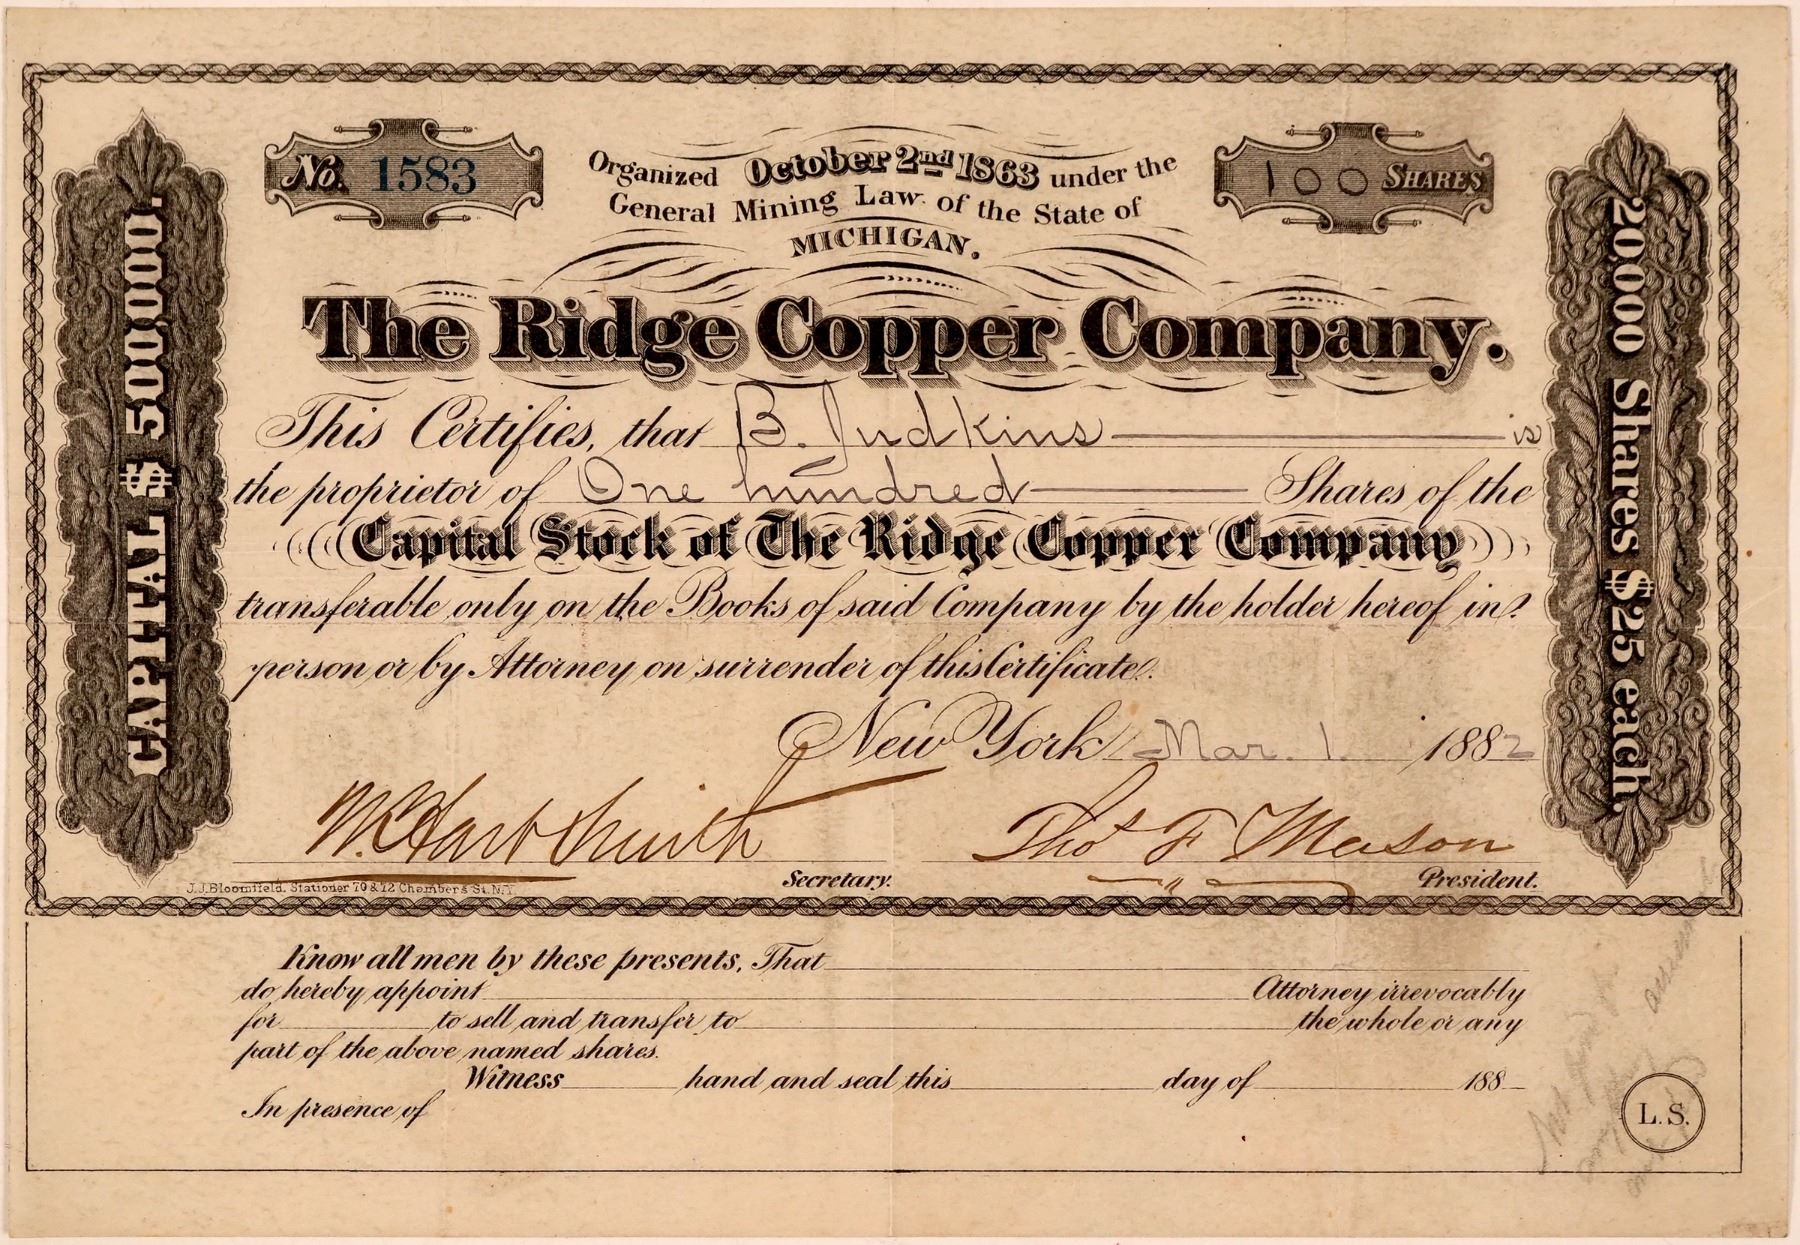 No. 1583
Organized October 2nd 1863 under the
General Mining Law of the State of
MICHIGAN.
100 SHARES
CAPITAL $500,000.
20,000 Shares $25 each.
The Ridge Copper Company.
This Certifies, that B. Judkins is
the proprietor of One hundred Shares of the
Capital Stock of The Ridge Copper Company
transferable only on the Books of said Company by the holder hereof in
person or by Attorney on surrender of this Certificate.
New York Mar. 1 1882
W. Hart Smith Thos F Mason
Secretary. President.
J.J. Bloomfield. Stationer 70 & 72 Chambers St. N.Y.
Know all men by these presents, That
do hereby appoint Attorney irrevocably
for to sell and transfer to the whole or any
part of the above named shares.
Witness hand and seal this day of 188
In presence of
L.S.